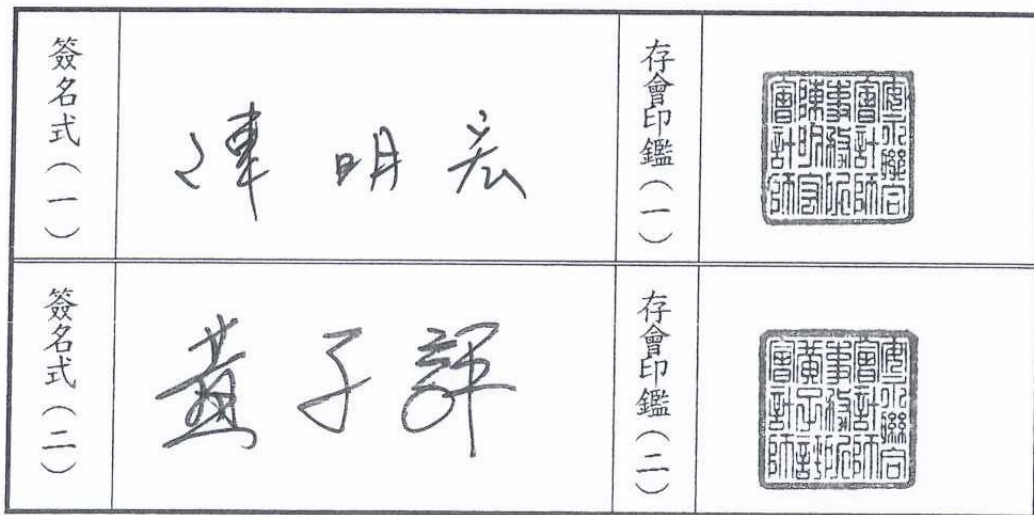 簽名式(一)
陳明宏
存會印鑑(一)
安永聯合
會計師
事務所
陳明宏
會計師
簽名式(二)
黃子評
存會印鑑(二)
安永聯合
會計師
事務所
黃子評
會計師